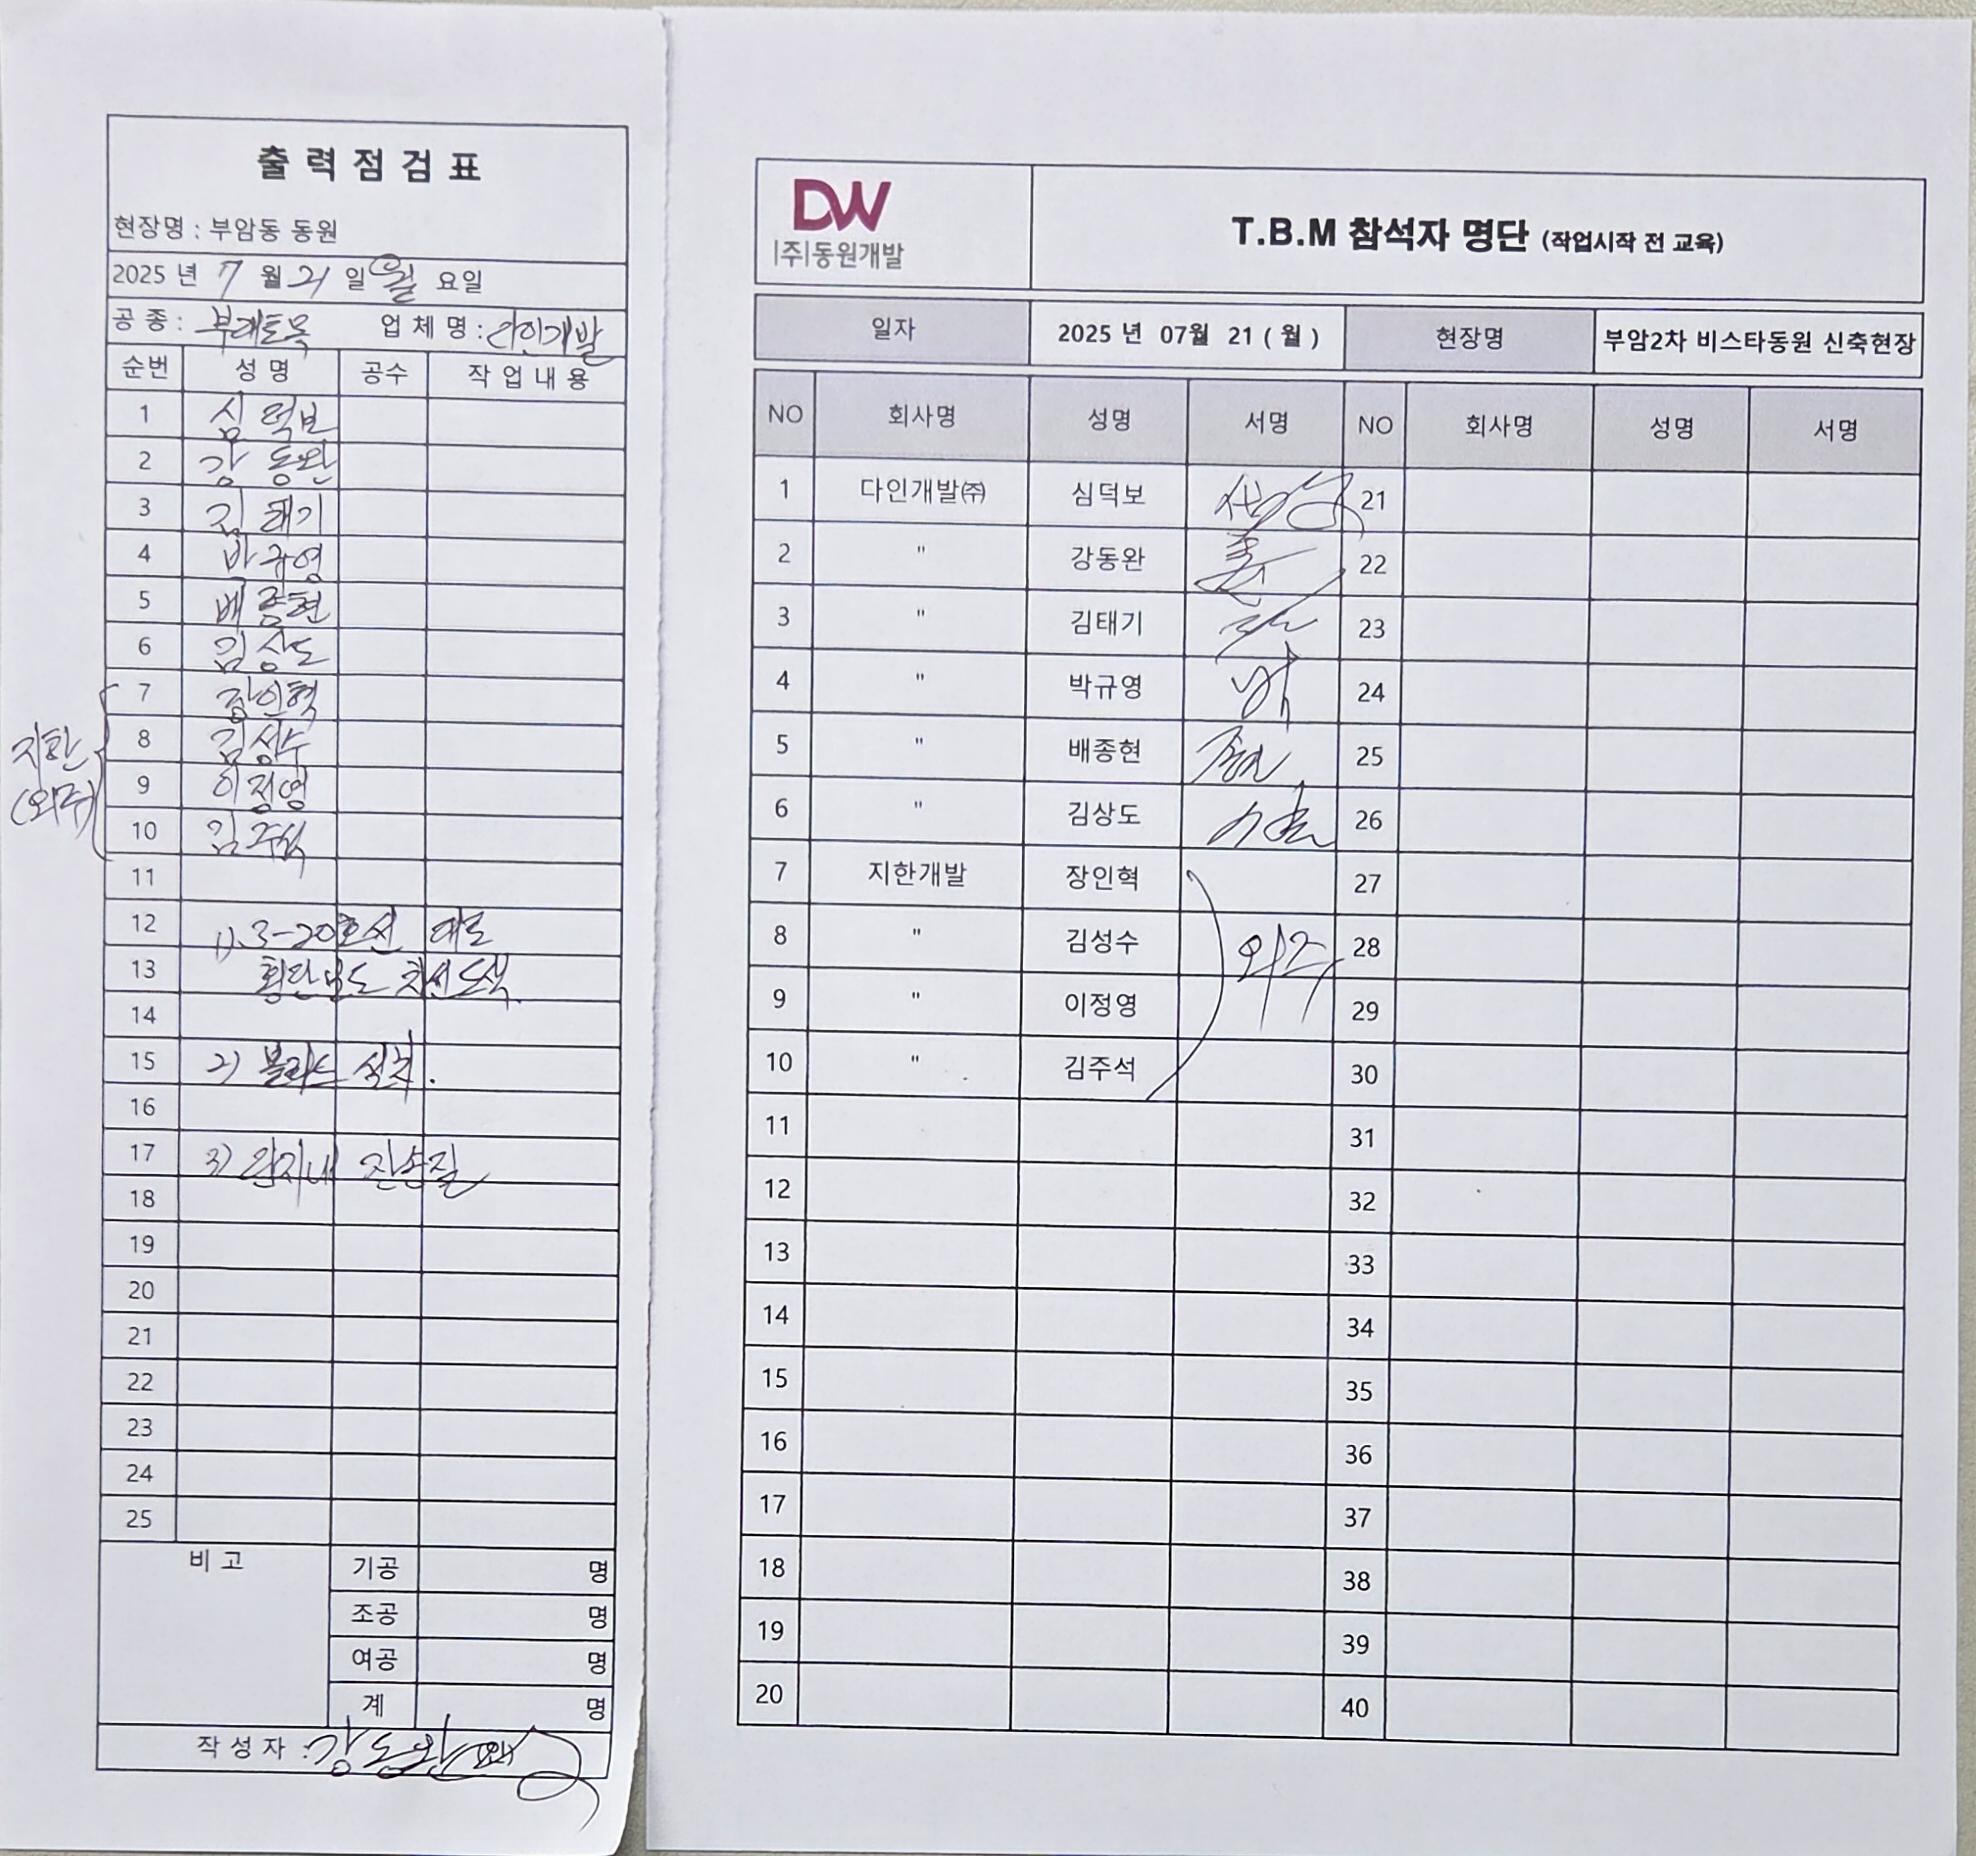 출 력 점 검 표
현장명 : 부암동 동원
2025 년 7 월 21 일 월 요일
공 종 : 부대토목 업 체 명 : 다인개발
순번 성 명 공수 작 업 내 용
1 심덕보
2 강동완
3 김태기
4 박규영
5 배종현
6 김상도
7 장인혁
8 김성수
9 이정영
10 김주석
지한
(외주)
11
12 1). 3-20호선 대로
13 횡단보도 차선도색.
14
15 2) 볼라드 설치.
16
17 3) 단지내 잔손질
18
19
20
21
22
23
24
25
비 고 기공 명
조공 명
여공 명
계 명
작 성 자 : 강동완
DW
|주|동원개발
T.B.M 참석자 명단 (작업시작 전 교육)
일자 2025 년 07월 21 ( 월 ) 현장명 부암2차 비스타동원 신축현장
NO 회사명 성명 서명 NO 회사명 성명 서명
1 다인개발㈜ 심덕보 21
2 " 강동완 22
3 " 김태기 23
4 " 박규영 24
5 " 배종현 25
6 " 김상도 26
7 지한개발 장인혁 27
8 " 김성수 외주 28
9 " 이정영 29
10 " 김주석 30
11 31
12 32
13 33
14 34
15 35
16 36
17 37
18 38
19 39
20 40